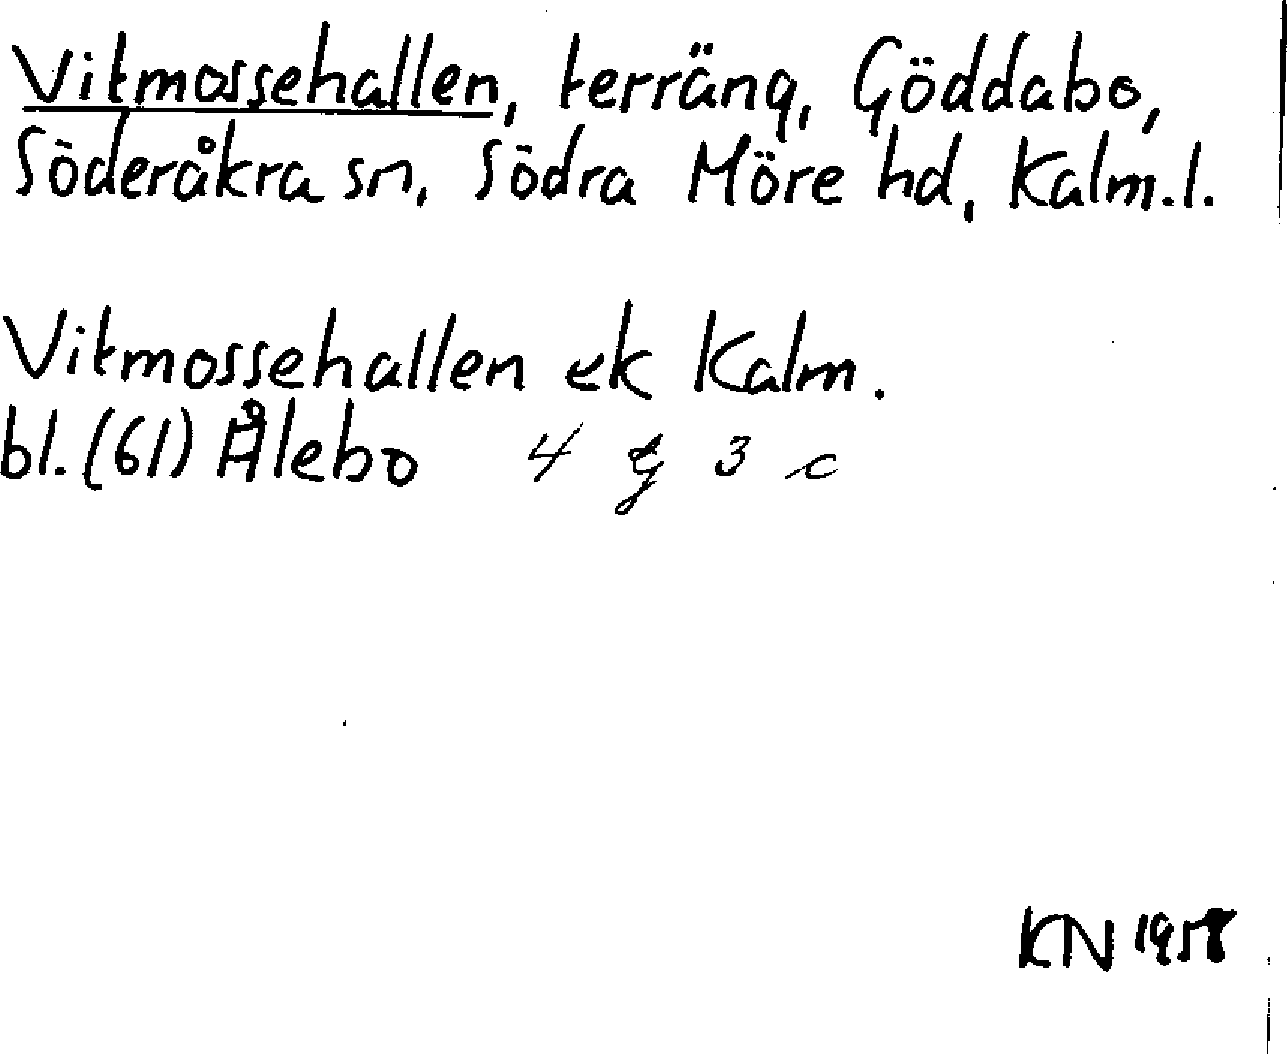 Vitmossehallen, terräng, Göddabo,
Söderåkra sn, Södra Möre hd, Kalm.l.
Vitmossehallen ek Kalm.
bl. (61) Ålebo 4 g 3 c
KN 1958